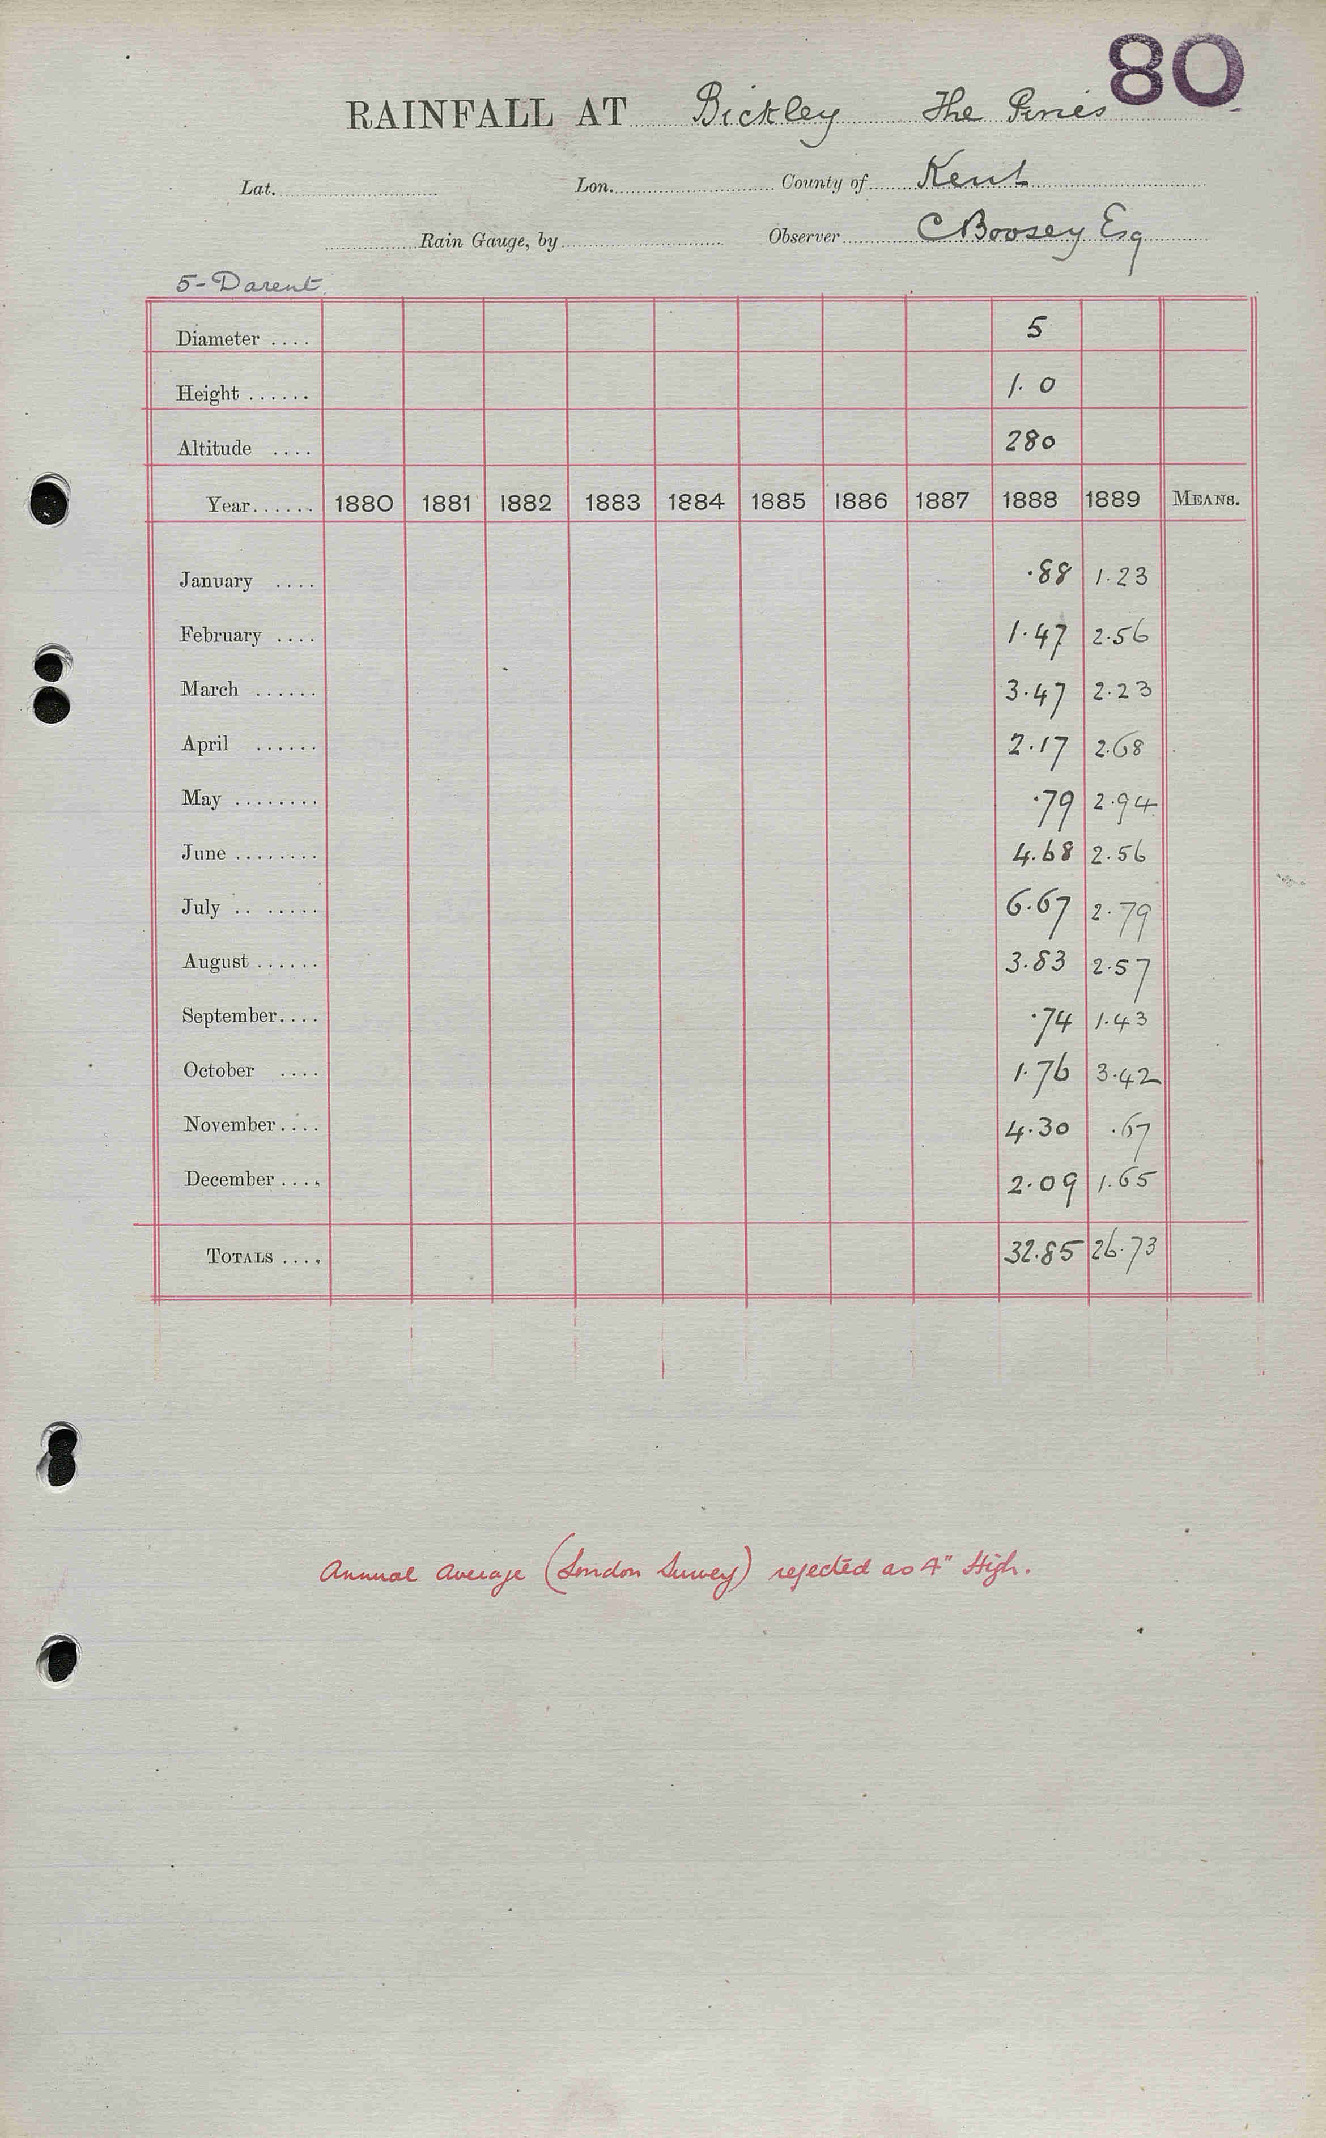 80
RAINFALL AT Bickley The Pines
Lat. Lon. County of Kent
Rain Gauge, by Observer C Boosey Esq
5-Darent
Diameter .... 5
Height ...... 1.0
Altitude .... 280
Year...... 1880 1881 1882 1883 1884 1885 1886 1887 1888 1889 MEANS.
January .... .88 1.23
February .... 1.47 2.56
March ...... 3.47 2.23
April ...... 2.17 2.68
May ........ .79 2.94
June ........ 4.68 2.56
July .. ..... 6.67 2.79
August ...... 3.83 2.57
September.... .74 1.43
October .... 1.76 3.42
November.... 4.30 .67
December .... 2.09 1.65
TOTALS .... 32.85 26.73
Annual Average (London Survey) rejected as 4" High.